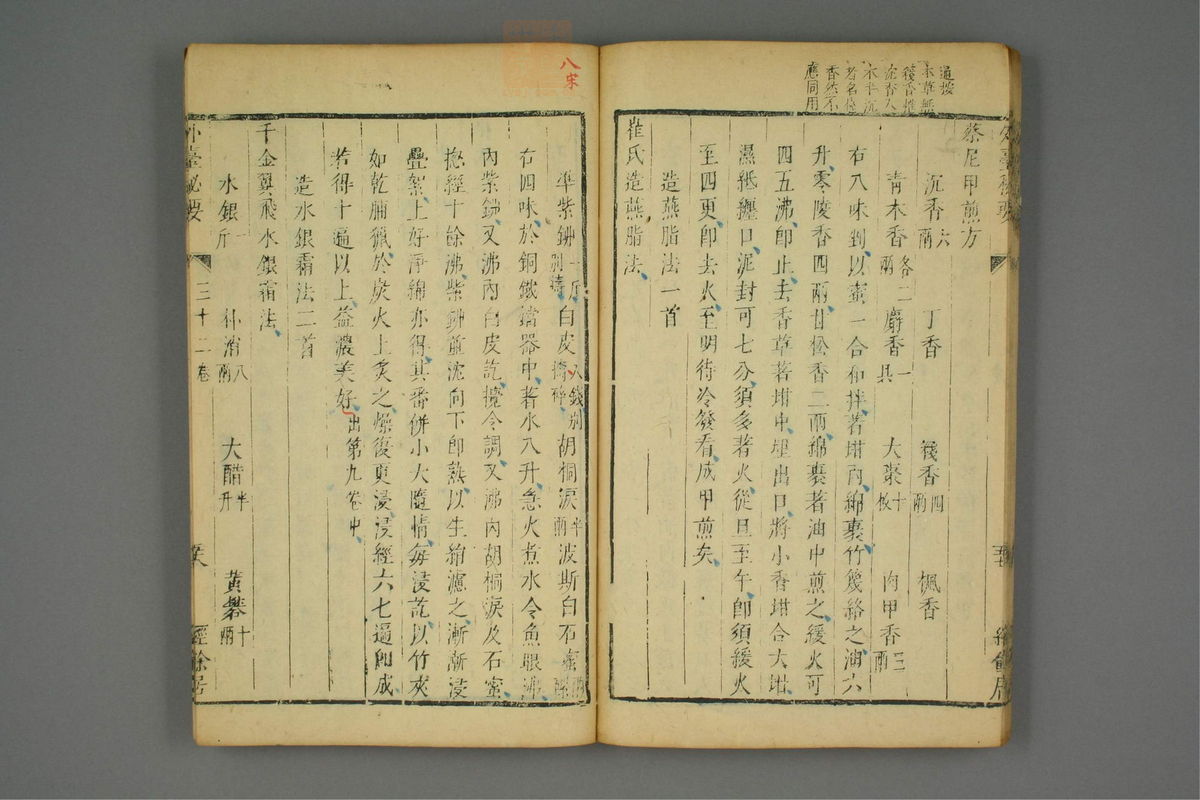 通按
本草無
篯香惟
沈香入
水半沉
者名篯
香然不
應同用
蔡尼甲煎方
沉香六兩 丁香 篯香四兩 楓香
青木香各二兩 麝香一具 大棗十枚 肉甲香三兩
右八味剉以蜜一合和拌著坩內綿裹竹篾絡之油六
升零陵香四兩甘松香二兩綿裹著油中煎之緩火可
四五沸即止去香草著坩中埋出口將小香坩合大坩
濕紙纏口泥封可七分須多著火從旦至午即須緩火
至四更即去火至明待冷發看成甲煎矣
造燕脂法一首
崔氏造燕脂法
八宋
準紫鉚一斤別擣白皮八錢別擣碎胡桐淚半兩波斯白石蜜兩
右四味於銅鐵鐺器中著水八升急火煮水令魚眼沸
內紫鉚又沸內白皮訖攪令調又沸內胡桐淚及石蜜
總經十餘沸紫鉚並沈向下即熟以生絹濾之漸漸浸
疊絮上好淨綿亦得其番併小大隨情每浸訖以竹夾
如乾脯獵於炭火上炙之燥復更浸浸經六七遍即成
若得十遍以上益濃美好出第九卷中
造水銀霜法二首
千金翼飛水銀霜法
水銀一斤 朴消八兩 大醋半升 黃礬十兩
外臺秘要 三十二卷 經餘居